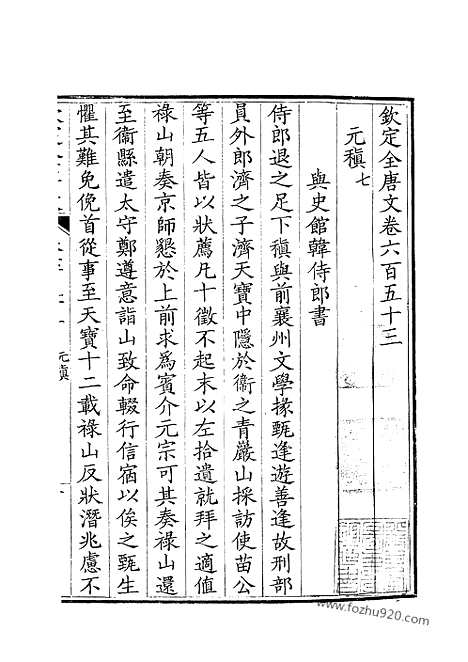 欽定全唐文卷六百五十三
元稹七
與史館韓侍郎書
侍郎退之足下稹與前襄州文學掾甄逢遊善逢故刑部
員外郎濟之子濟天寶中隱於衞之青巖山採訪使苗公
等五人皆以狀薦凡十徵不起末以左拾遺就拜之適值
祿山朝奏京師懇於上前求為賓介元宗可其奏祿山還
至衞縣遣太守鄭遵意詣山致命輟行信宿以俟之甄生
懼其難免俛首從事至天寶十二載祿山反狀潛兆慮不
元稹
www.fozhu920.com